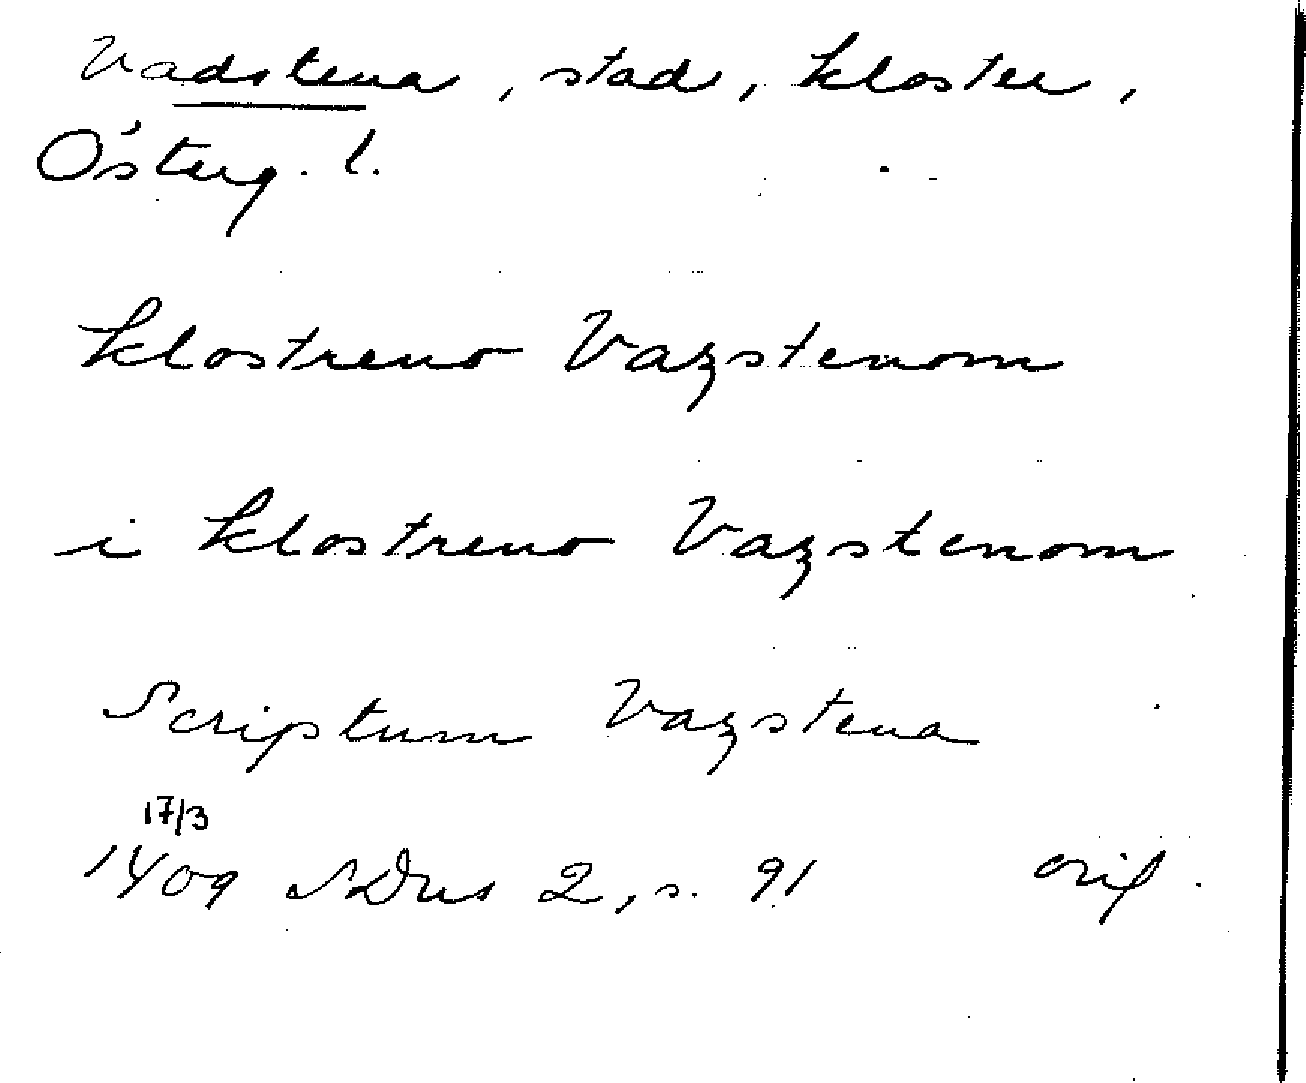 Vadstena, stad, kloster,
Österg. l.
klostreno Vazstenom
i klostreno Vazstenom
Scriptum Vazstena
17/3
1409 SDns 2, s. 91 orig.